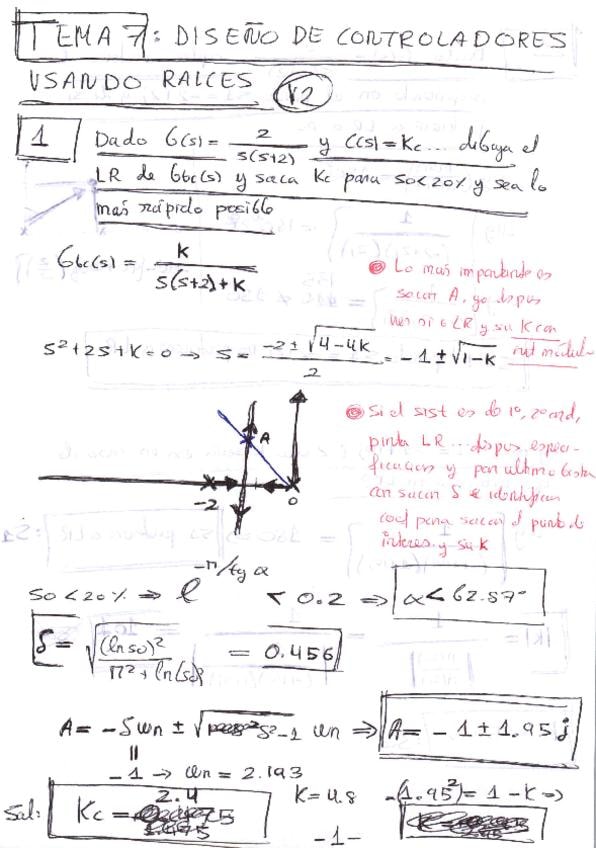 TEMA 7: DISEÑO DE CONTROLADORES
USANDO RAICES V2
1 Dado G(s) = 2 / s(s+2) y C(s) = Kc... dibuja el
LR de Gbc(s) y saca Kc para SO<20% y sea lo
más rápido posible
Gbc(s) = K / s(s+2)+K
Lo mas importante es
sacar A, ya
si ∈ LR y su K con
s²+2s+K=0 → s = -2 ± √4-4K / 2 = -1 ± √1-K
A
-2
0
Si el sist es de 1º, 2º ord,
pinta LR ... especi-
ficaciones y por ultimo
con sacar S e identificar
coef para sacar el punto de
interes y su K
SO < 20% ⇒ e^(-π/tg α) < 0.2 ⇒ α < 62.87°
δ = √(ln so)² / π²+ln(so)² = 0.456
A = -δωn ± √δ²-1 ωn ⇒ A = -1 ± 1.95j
=
-1 → ωn = 2.193
Sol: Kc = 2.4
K = 4.8
-(1.95²) = 1 - K ⇒
-1-